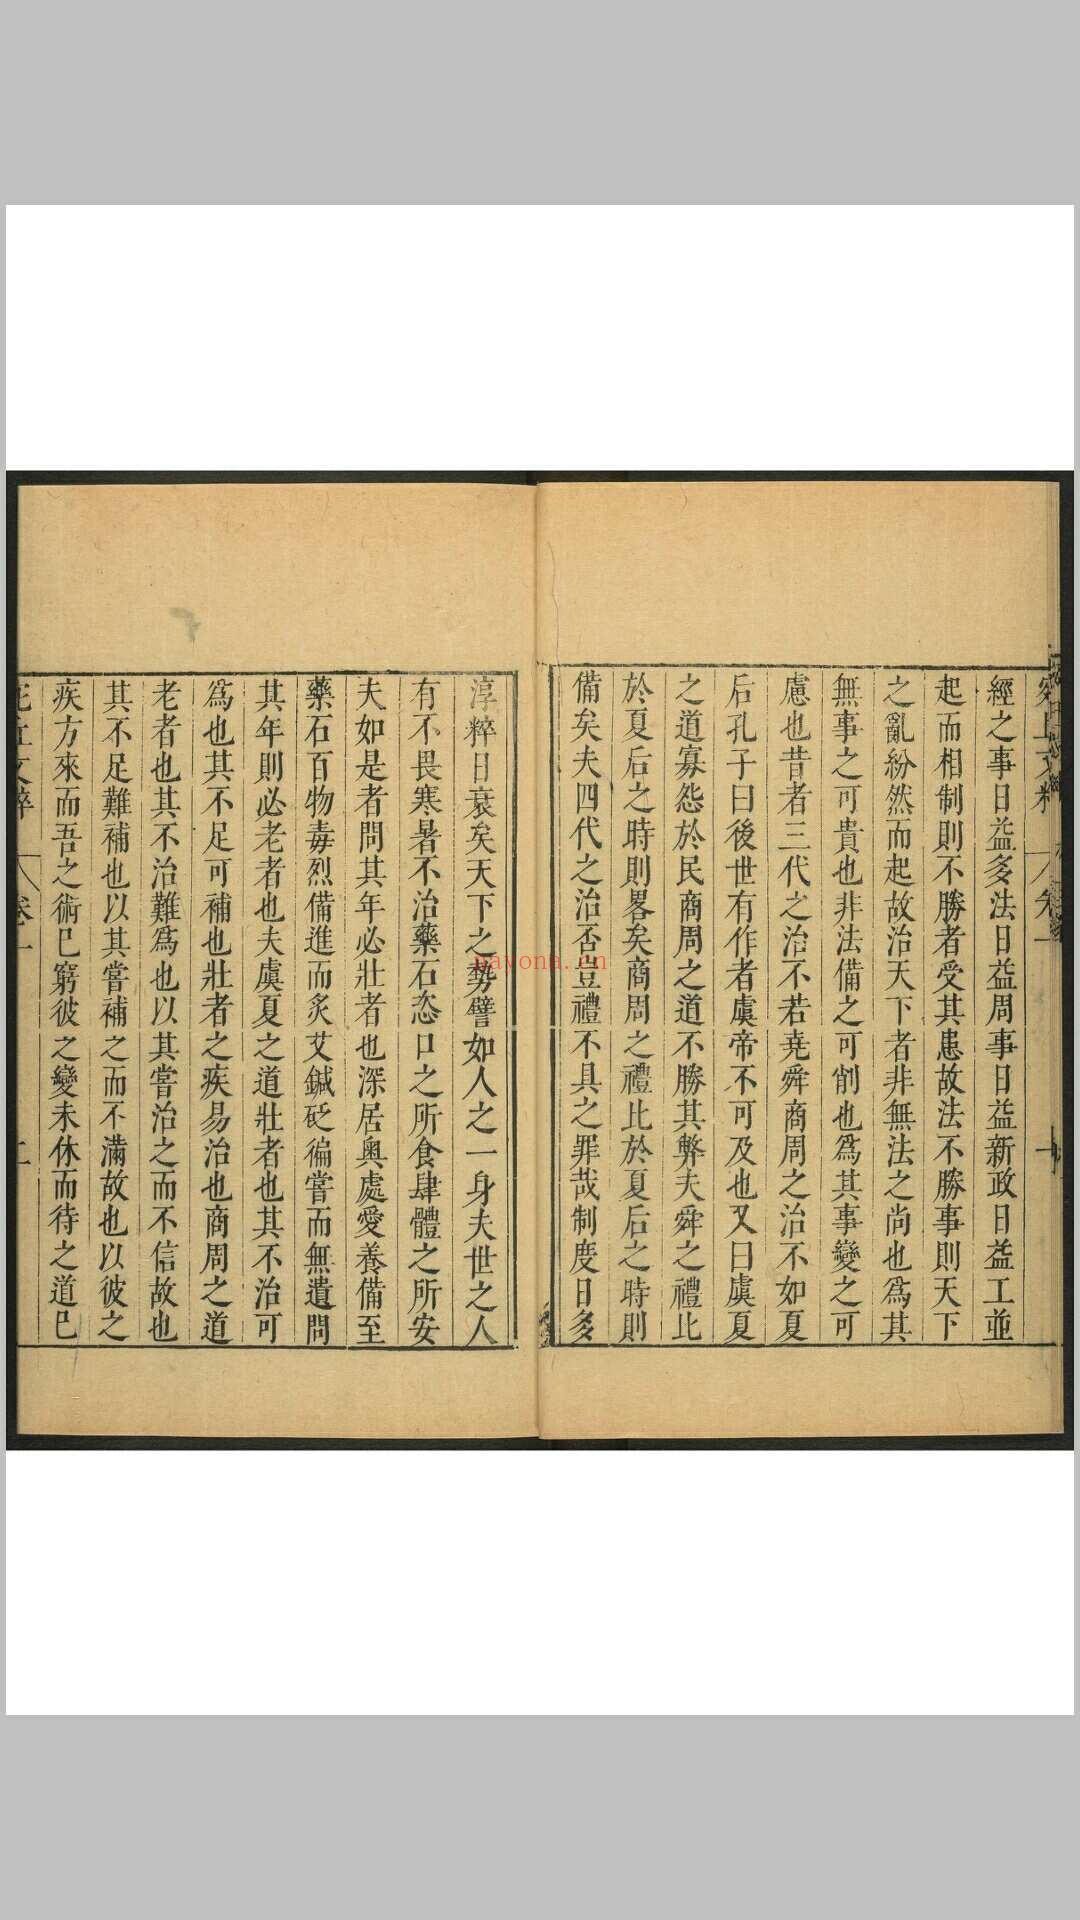 經之事日益多法日益周事日益新政日益工並
起而相制則不勝者受其患故法不勝事則天下
之亂紛然而起故治天下者非無法之尚也爲其
無事之可貴也非法備之可削也爲其事變之可
慮也昔者三代之治不若堯舜商周之治不如夏
后孔子曰後世有作者虞帝不可及也又曰虞夏
之道寡怨於民商周之道不勝其弊夫舜之禮比
於夏后之時則畧矣商周之禮比於夏后之時則
備矣夫四代之治否豈禮不具之罪哉制度日多
淳粹日衰矣天下之勢譬如人之一身夫世之人
有不畏寒暑不治藥石恣口之所食肆體之所安
夫如是者問其年必壯者也深居奥處愛養備至
藥石百物毒烈備進而炙艾鍼砭徧嘗而無遺問
其年則必老者也夫虞夏之道壯者也其不治可
爲也其不足可補也壯者之疾易治也商周之道
老者也其不治難爲也以其嘗治之而不信故也
其不足難補也以其嘗補之而不滿故也以彼之
疾方來而吾之術已窮彼之變未休而待之道已
宛丘文粹 卷一
nayona.cn